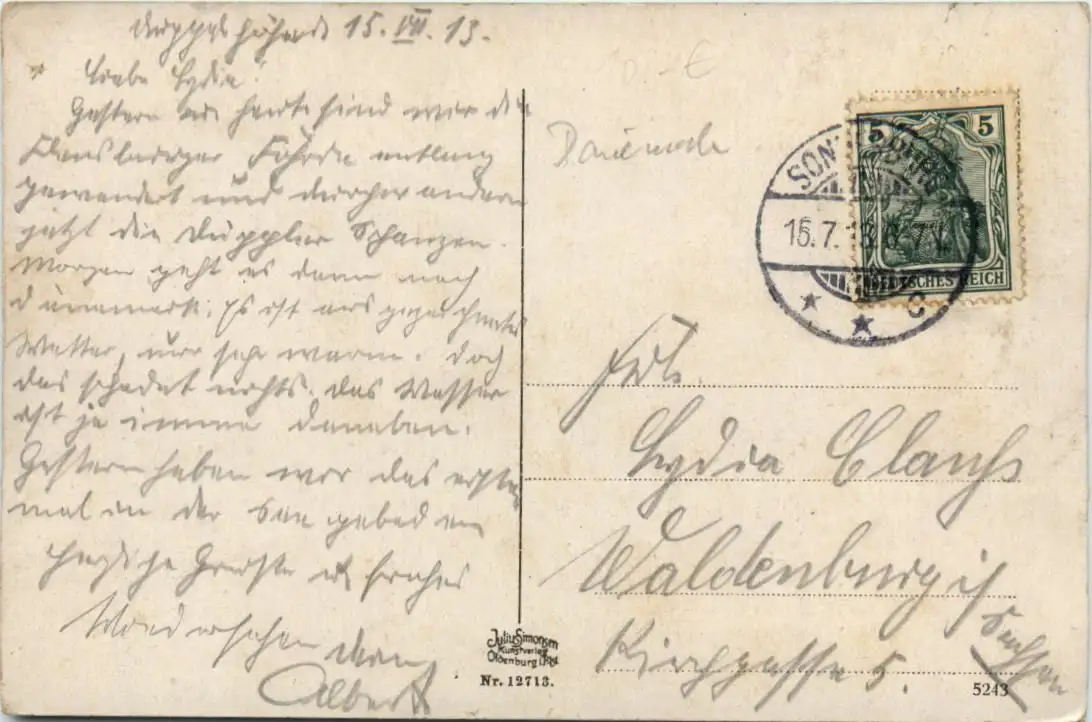 Düppelhöhe d. 15. VII. 13.
Liebe Lydia!
Gestern und heute sind wir die
Flensburger Förde entlang
gewandert und
jetzt die Düppler Schanzen.
Morgen geht es dann nach
Dänemark. Es ist ausgezeichnetes
Wetter, nur sehr warm. Doch
das schadet nichts. Das Wasser
ist ja immer daneben.
Gestern haben wir das erste
mal in der See gebadet.
Herzliche Grüße u. frohes
Wiedersehen
Albert
Dänemark
5 5
SON
15.7.13.6-7
DEUTSCHES REICH
C
Frl.
Lydia
Waldenburg i/
Sachsen
Kirchgasse 5.
Julius Simonsen
Kunstverlag
Oldenburg i/Hol.
Nr. 12713.
5243